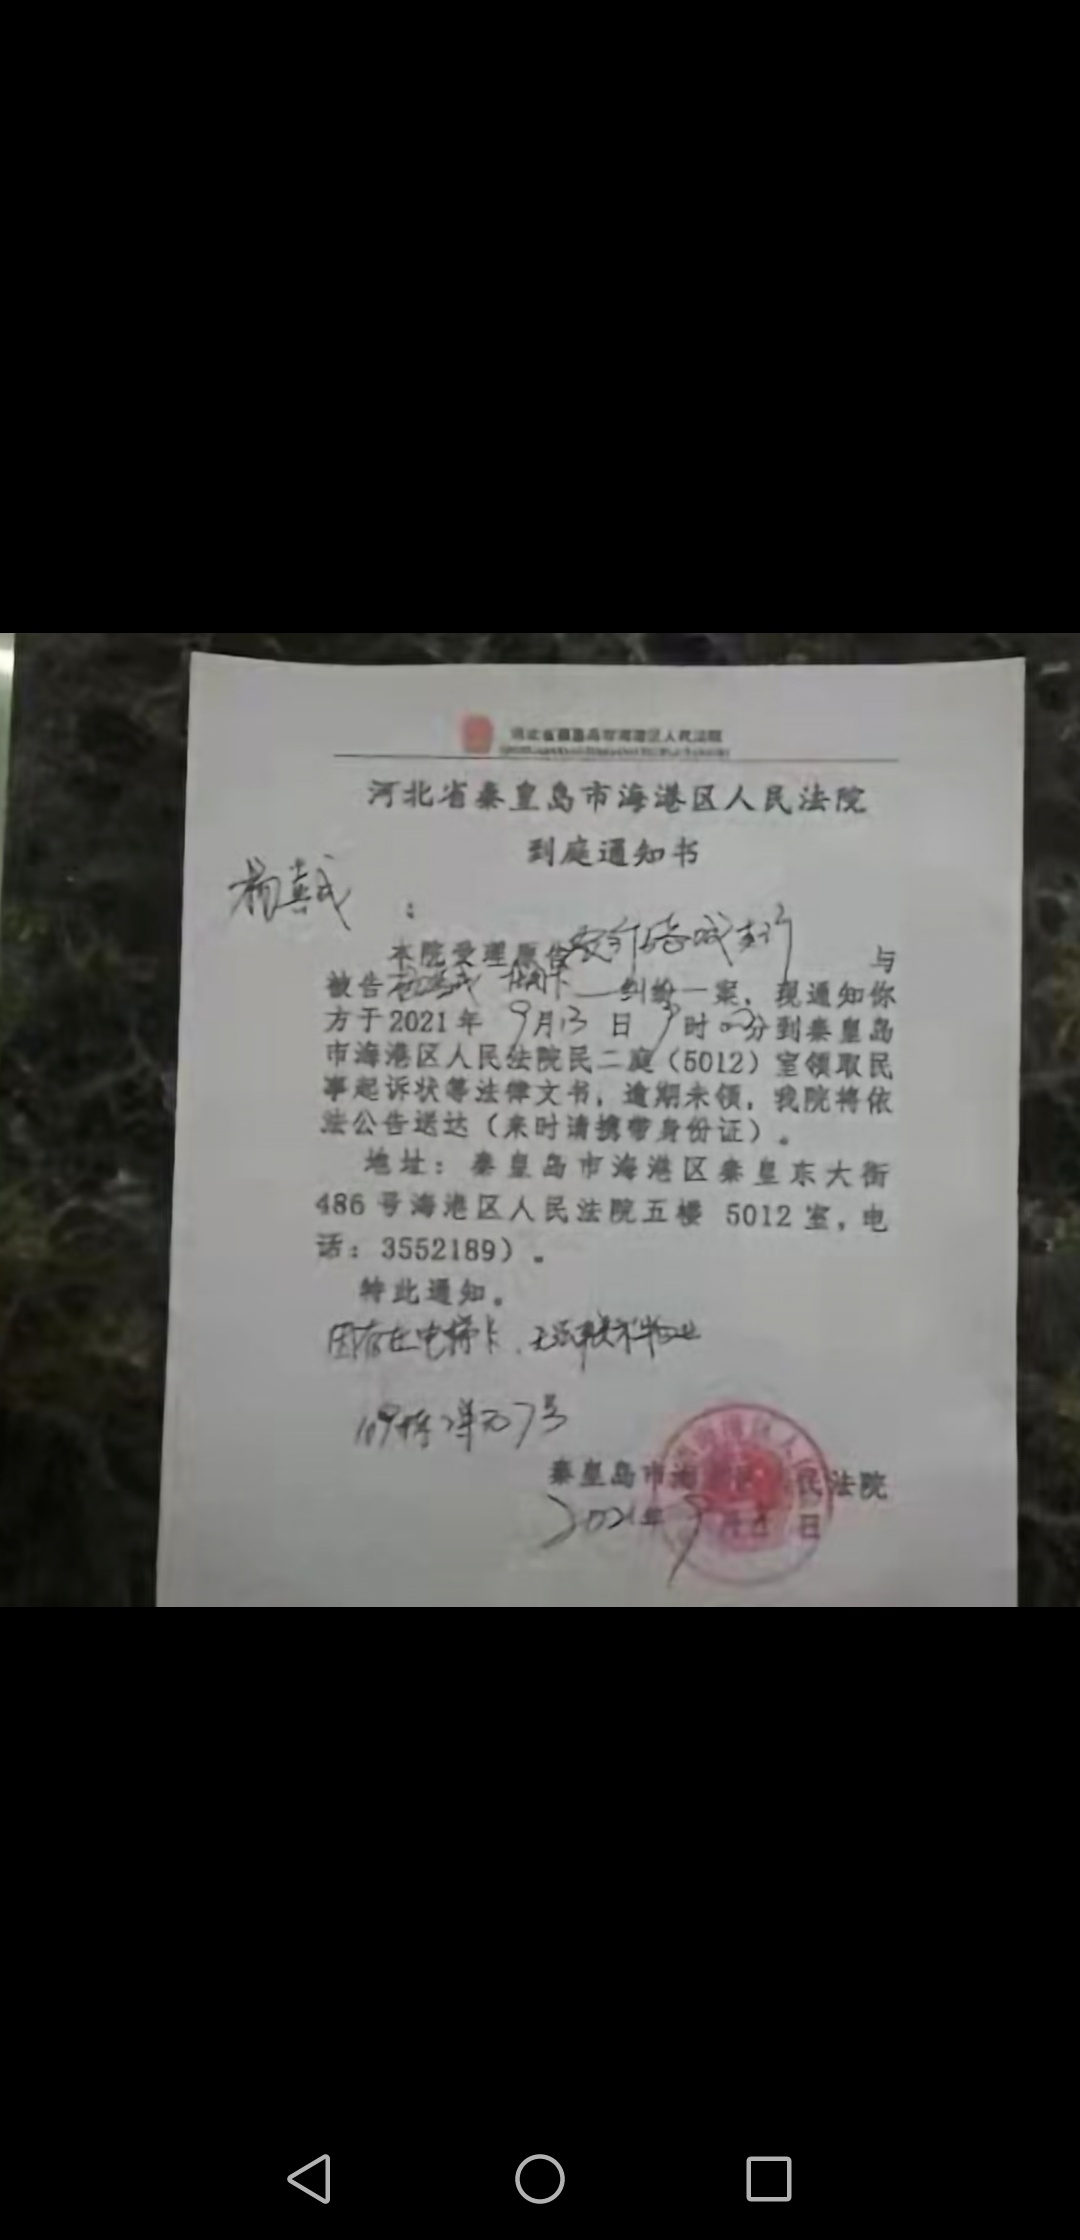 河北省秦皇岛市海港区人民法院
河北省秦皇岛市海港区人民法院
到庭通知书
杨
:
本院受理原告 与
被告 纠纷一案，现通知你
方于2021年 9月13日 9时00分到秦皇岛
市海港区人民法院民二庭（5012）室领取民
事起诉状等法律文书，逾期未领，我院将依
法公告送达（来时请携带身份证）。
地址：秦皇岛市海港区秦皇东大街
486号海港区人民法院五楼 5012室，电
话：3552189）。
特此通知。
因存在电梯卡，无法联系物业
109栋2单元7号
秦皇岛市海港区人民法院
2021年9月 日